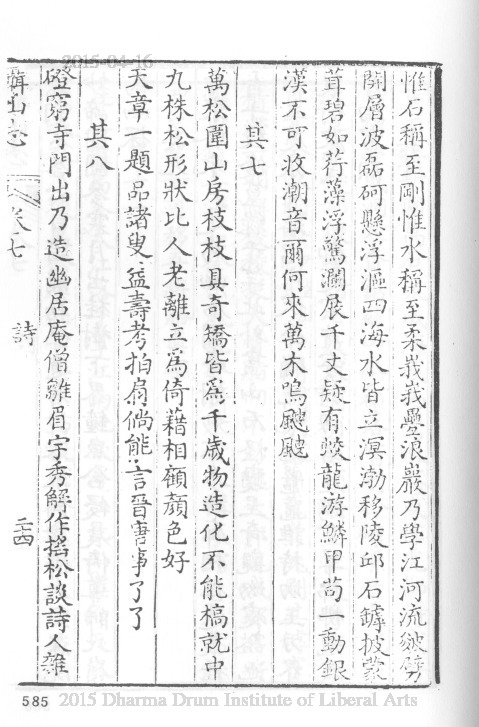 2015-04-16
惟石稱至剛惟水稱至柔峩峩疊浪巖乃學江河流皴劈
開層波磊砢懸浮漚四海水皆立溟渤移陵邱石罅披蒙
茸碧如荇藻浮驚瀾展千丈疑有蛟龍游鱗甲苟一動銀
漢不可收潮音爾何來萬木嗚颼颼
其七
萬松圍山房枝枝具奇矯皆為千歲物造化不能槁就中
九株松形狀比人老離立為倚藉相顧顏色好
天章一題品諸叟益壽考拍扇倘能言晉唐事了了
其八
磴窮寺門出乃造幽居庵僧雛眉宇秀解作搖松談詩人雜
山志 卷七 詩 二十四
585
2015 Dharma Drum Institute of Liberal Arts